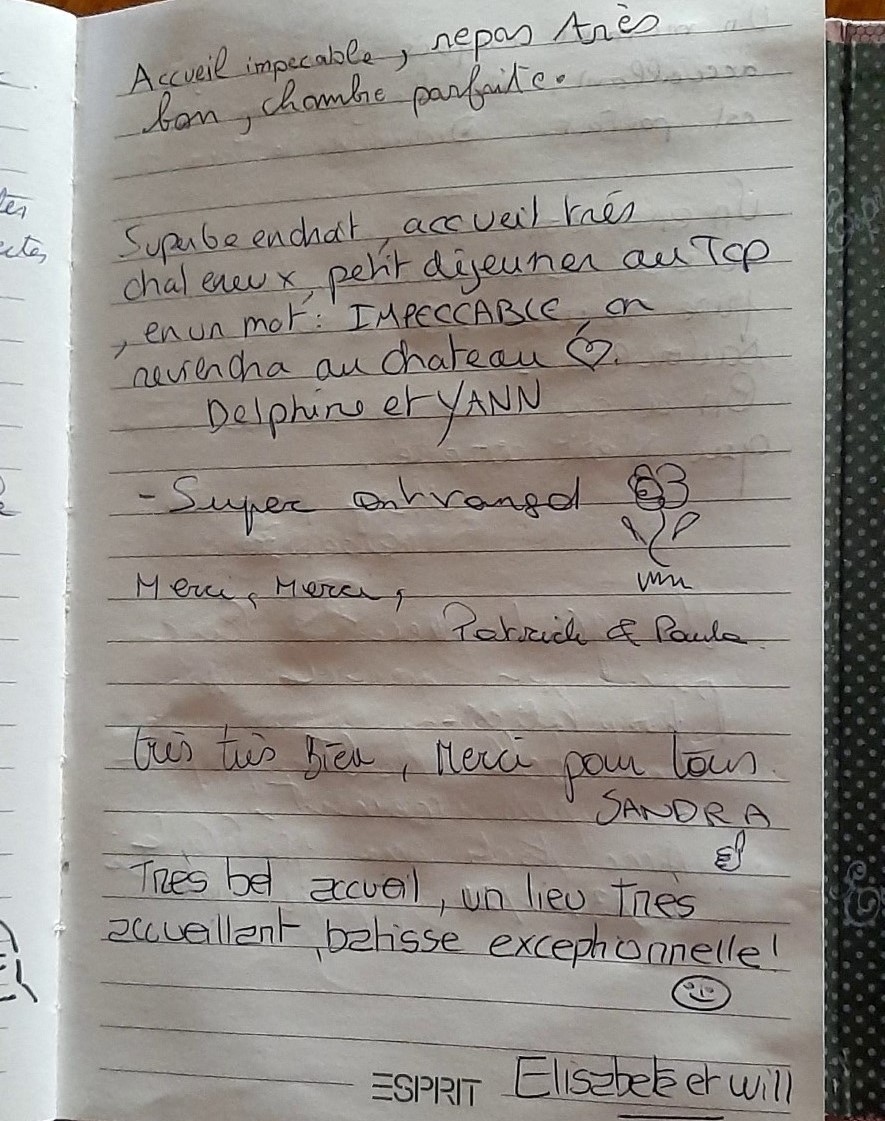 Accueil impecable, repas très
bon, chambre parfaite.
Superbe endroit, accueil très
chalereux, petit déjeuner au TOP
, en un mot : IMPECCABLE, on
reviendra au chateau
Delphine et YANN
- Super
Merci, Merci,
Patrick & Paula
très très Bien, Merci pour tous.
SANDRA
Très bel accueil, un lieu très
accueillant, batisse exceptionnelle!
ESPRIT Elisabete et will